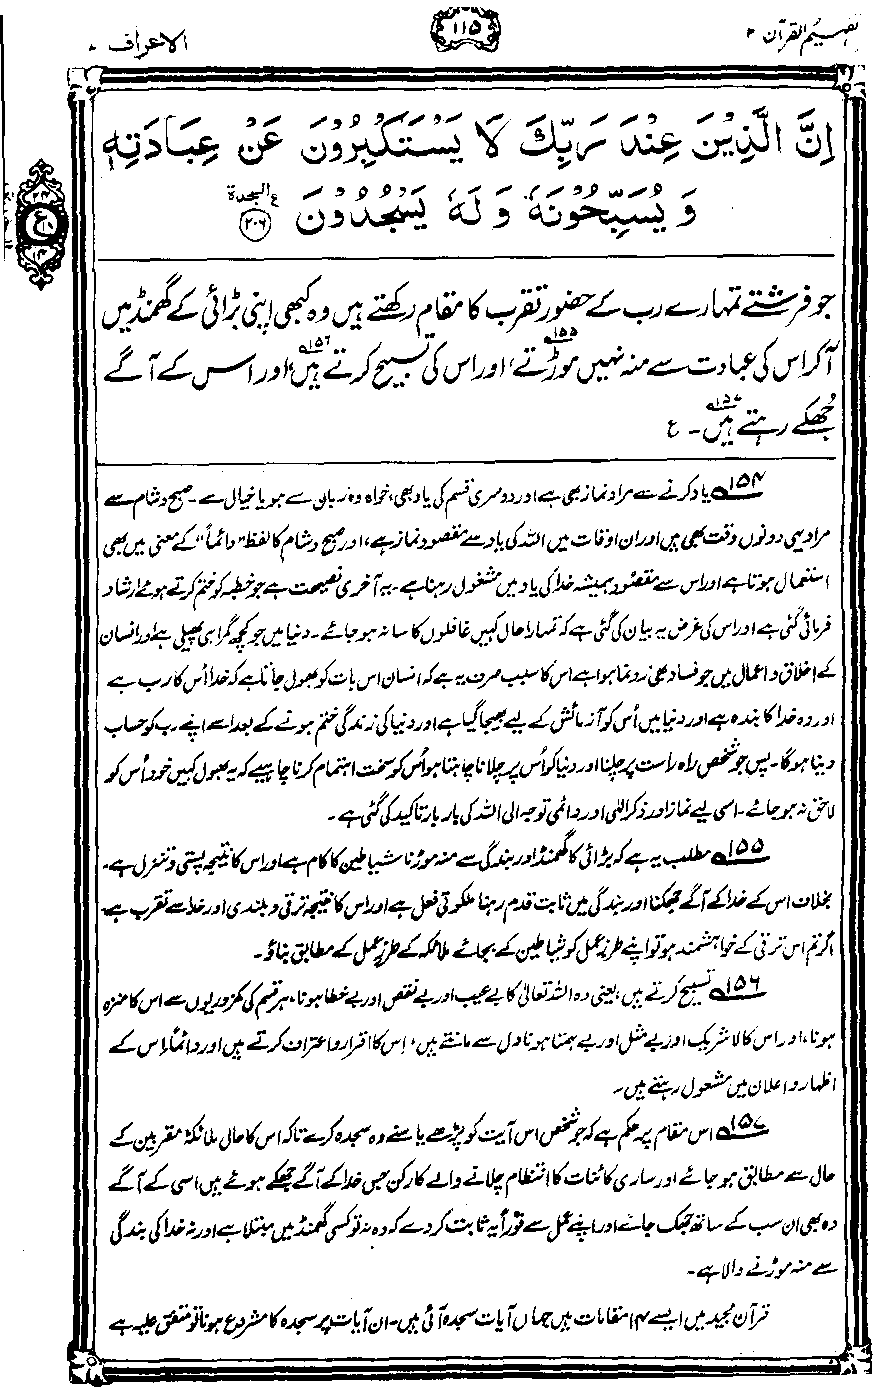 تفہیم القرآن ۲
۱۱۵
الاعراف ۷
اِنَّ الَّذِیْنَ عِنْدَ رَبِّكَ لَا یَسْتَكْبِرُوْنَ عَنْ عِبَادَتِهٖ
وَ یُسَبِّحُوْنَهٗ وَ لَهٗ یَسْجُدُوْنَ ۝۲۰۶ السجدة
۲۴
ع
۱۴
جو فرشتے تمہارے رب کے حضور تقرب کا مقام رکھتے ہیں وہ کبھی اپنی بڑائی کے گھمنڈ میں
آکر اس کی عبادت سے منہ نہیں موڑتے،۱۵۵ اور اس کی تسبیح کرتے ہیں،۱۵۶ اور اس کے آگے
جُھکے رہتے ہیں۔۱۵۷ ع
۱۵۴ یاد کرنے سے مراد نماز بھی ہے اور دوسری قسم کی یاد بھی، خواہ وہ زبان سے ہو یا خیال سے۔ صبح و شام سے
مراد یہی دونوں وقت بھی ہیں اور ان اوقات میں اللہ کی یاد سے مقصود نماز ہے، اور صبح و شام کا لفظ ”دائماً“ کے معنی میں بھی
استعمال ہوتا ہے اور اس سے مقصُود ہمیشہ خدا کی یاد میں مشغول رہنا ہے۔ یہ آخری نصیحت ہے جو خطبہ کو ختم کرتے ہوئے ارشاد
فرمائی گئی ہے اور اس کی غرض یہ بیان کی گئی ہے کہ تمہارا حال کہیں غافلوں کا سا نہ ہو جائے۔ دنیا میں جو کچھ گمراہی پھیلی ہے اور انسان
کے اخلاق و اعمال میں جو فساد بھی رونما ہوا ہے اس کا سبب صرف یہ ہے کہ انسان اس بات کو بھول جاتا ہے کہ خدا اُس کا رب ہے
اور وہ خدا کا بندہ ہے اور دنیا میں اُس کو آزمائش کے لیے بھیجا گیا ہے اور دنیا کی زندگی ختم ہونے کے بعد اسے اپنے رب کو حساب
دینا ہوگا۔ پس جو شخص راہ راست پر چلنا اور دنیا کو اُس پر چلانا چاہتا ہو اُس کو سخت اہتمام کرنا چاہیے کہ یہ بھول کہیں خود اُس کو
لاحق نہ ہو جائے۔ اسی لیے نماز اور ذکر الٰہی اور دائمی توجہ الی اللہ کی بار بار تاکید کی گئی ہے۔
۱۵۵ مطلب یہ ہے کہ بڑائی کا گھمنڈ اور بندگی سے منہ موڑنا شیاطین کا کام ہے اور اس کا نتیجہ پستی و تنزل ہے۔
بخلاف اس کے خدا کے آگے جھکنا اور بندگی میں ثابت قدم رہنا ملکوتی فعل ہے اور اس کا نتیجہ ترقی و بلندی اور خدا سے تقرب ہے۔
اگر تم اس ترقی کے خواہشمند ہو تو اپنے طرزِ عمل کو شیاطین کے بجائے ملائکہ کے طرزِ عمل کے مطابق بناؤ۔
۱۵۶ تسبیح کرتے ہیں، یعنی وہ اللہ تعالیٰ کا بے عیب اور بے نقص اور بے خطا ہونا، ہر قسم کی کمزوریوں سے اس کا منزہ
ہونا، اور اس کا لا شریک اور بے مثل اور بے ہمتا ہونا دل سے مانتے ہیں، اِس کا اقرار و اعتراف کرتے ہیں اور دائماً اِس کے
اظہار و اعلان میں مشغول رہتے ہیں۔
۱۵۷ اس مقام پر حکم ہے کہ جو شخص اس آیت کو پڑھے یا سنے وہ سجدہ کرے تاکہ اس کا حال ملائکۂ مقربین کے
حال سے مطابق ہو جائے اور ساری کائنات کا انتظام چلانے والے کارکن جس خدا کے آگے جھکے ہوئے ہیں اسی کے آگے
وہ بھی ان سب کے ساتھ جھک جائے اور اپنے عمل سے فوراً یہ ثابت کر دے کہ وہ نہ تو کسی گھمنڈ میں مبتلا ہے اور نہ خدا کی بندگی
سے منہ موڑنے والا ہے۔
قرآن مجید میں ایسے ۱۴ مقامات ہیں جہاں آیات سجدہ آئی ہیں۔ ان آیات پر سجدہ کا مشروع ہونا تو متفق علیہ ہے